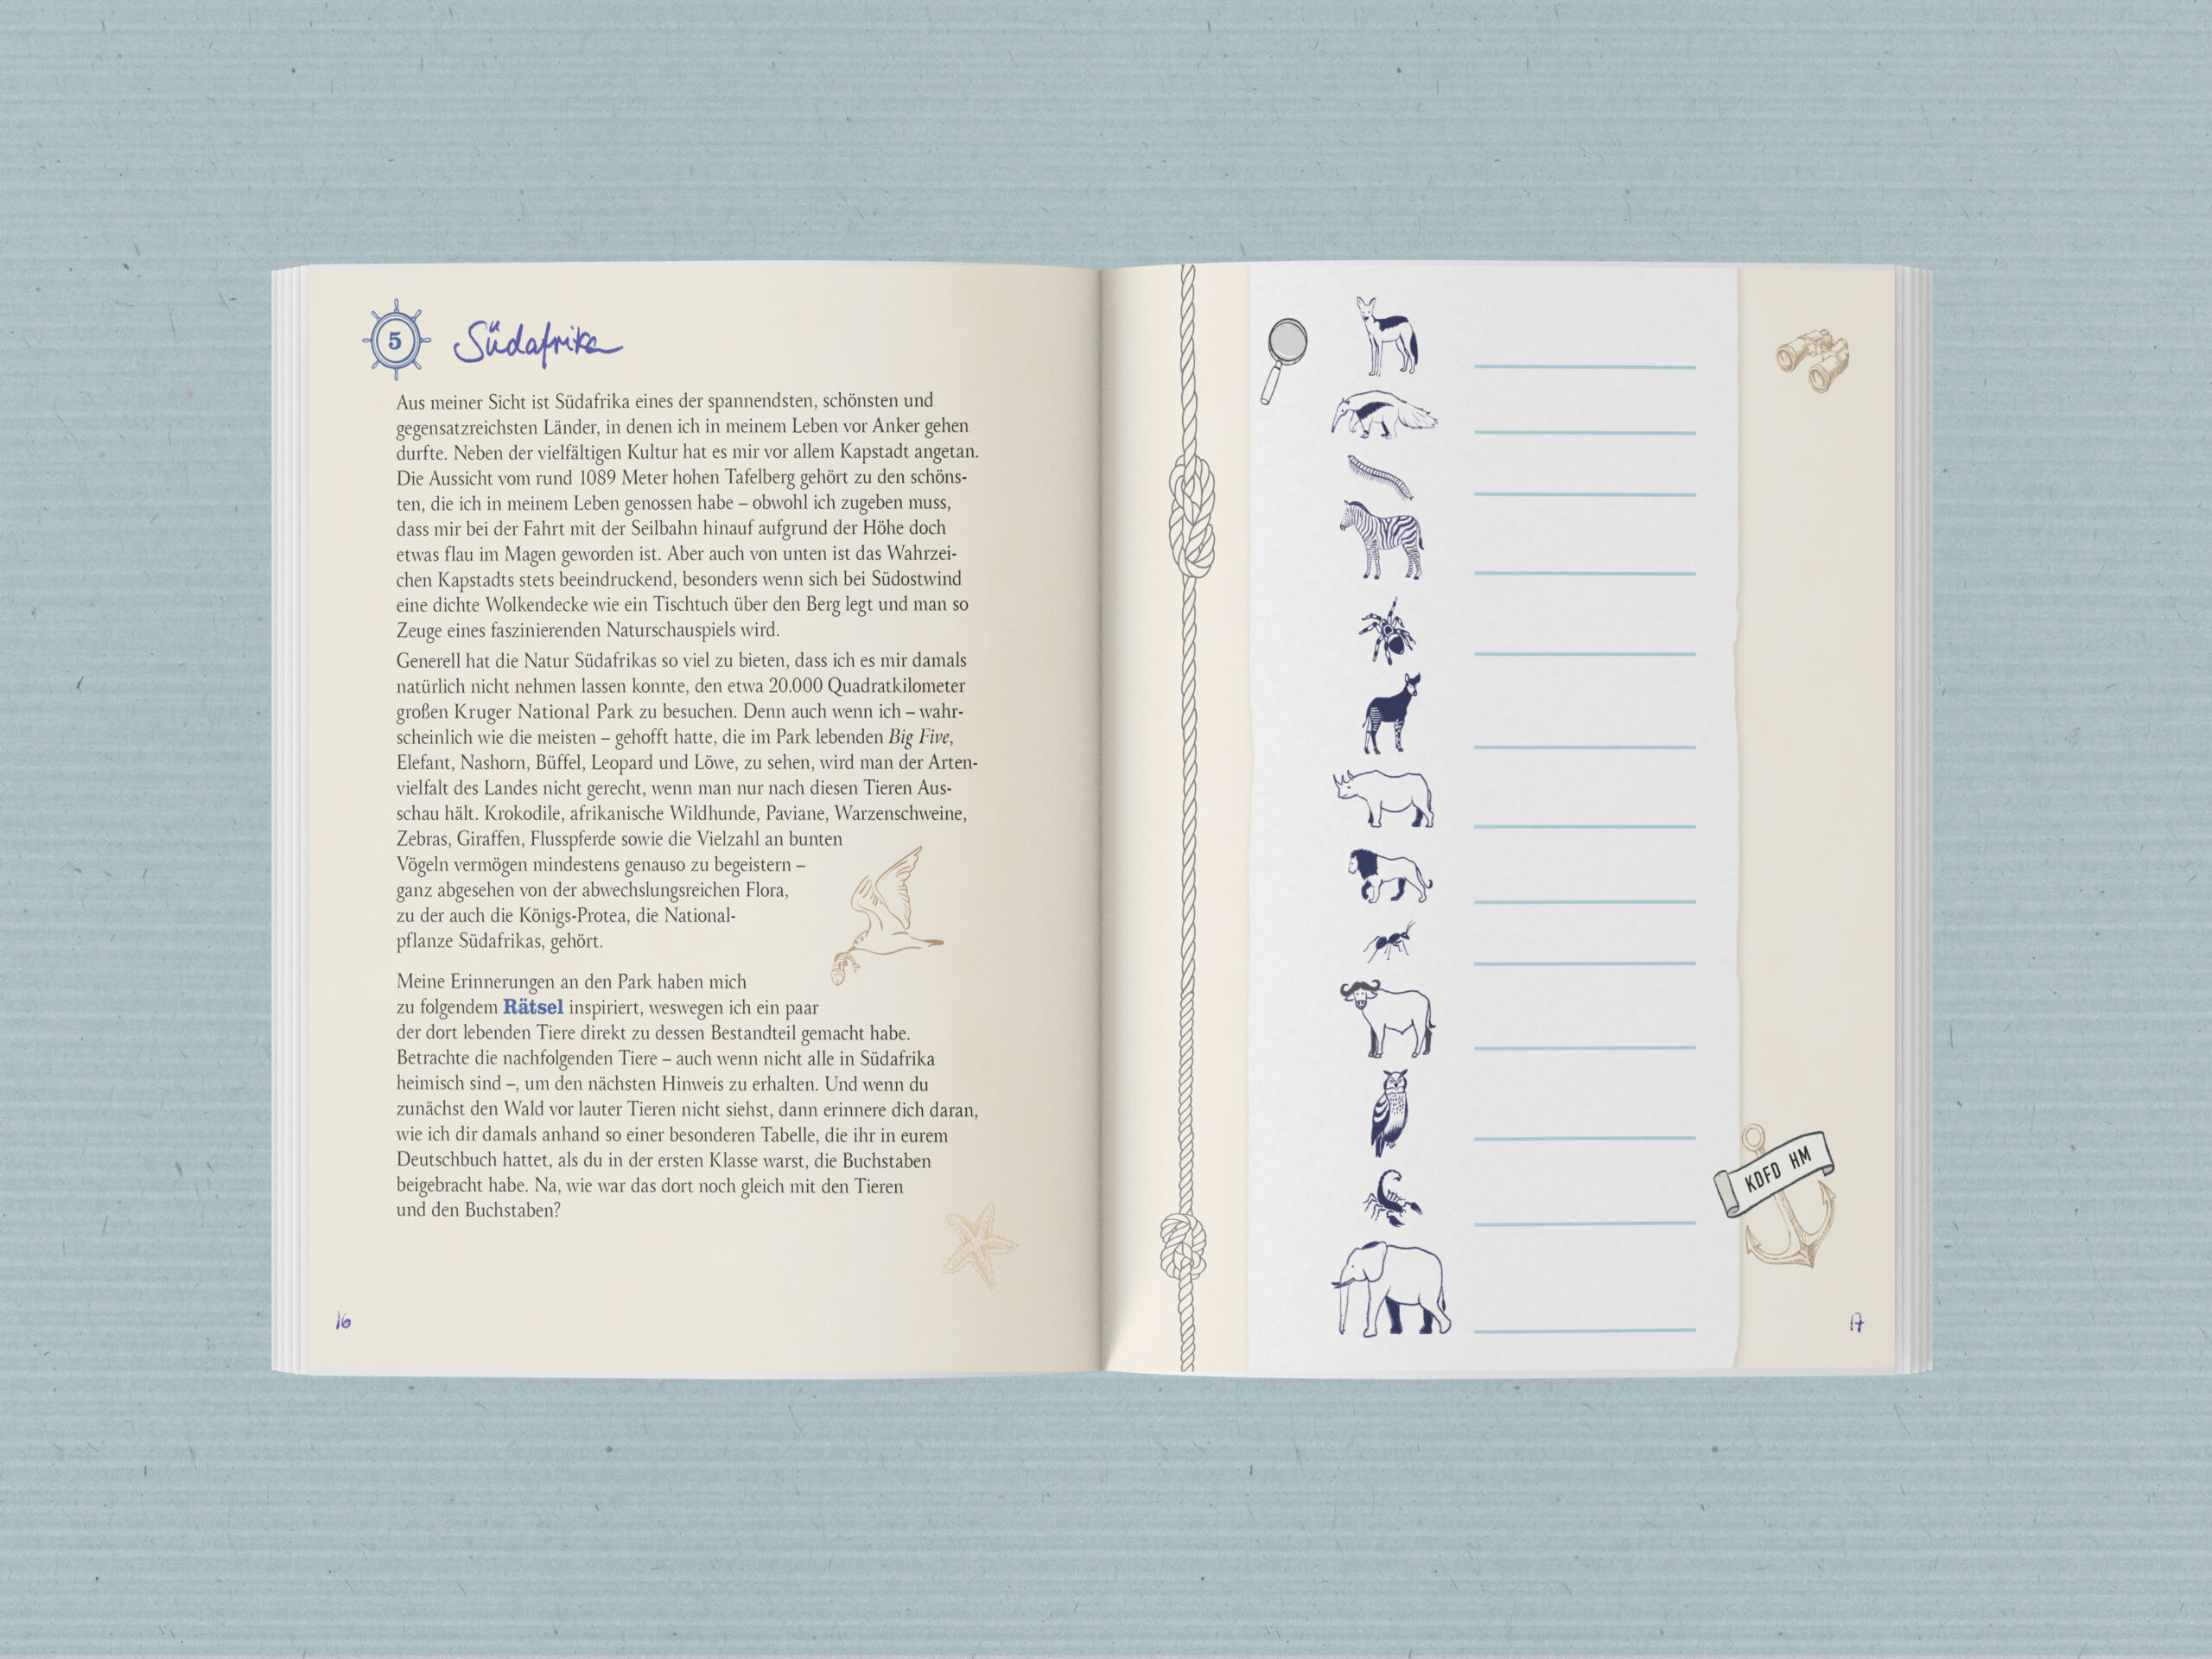 5
Südafrika
Aus meiner Sicht ist Südafrika eines der spannendsten, schönsten und
gegensatzreichsten Länder, in denen ich in meinem Leben vor Anker gehen
durfte. Neben der vielfältigen Kultur hat es mir vor allem Kapstadt angetan.
Die Aussicht vom rund 1089 Meter hohen Tafelberg gehört zu den schöns-
ten, die ich in meinem Leben genossen habe – obwohl ich zugeben muss,
dass mir bei der Fahrt mit der Seilbahn hinauf aufgrund der Höhe doch
etwas flau im Magen geworden ist. Aber auch von unten ist das Wahrzei-
chen Kapstadts stets beeindruckend, besonders wenn sich bei Südostwind
eine dichte Wolkendecke wie ein Tischtuch über den Berg legt und man so
Zeuge eines faszinierenden Naturschauspiels wird.
Generell hat die Natur Südafrikas so viel zu bieten, dass ich es mir damals
natürlich nicht nehmen lassen konnte, den etwa 20.000 Quadratkilometer
großen Kruger National Park zu besuchen. Denn auch wenn ich – wahr-
scheinlich wie die meisten – gehofft hatte, die im Park lebenden Big Five,
Elefant, Nashorn, Büffel, Leopard und Löwe, zu sehen, wird man der Arten-
vielfalt des Landes nicht gerecht, wenn man nur nach diesen Tieren Aus-
schau hält. Krokodile, afrikanische Wildhunde, Paviane, Warzenschweine,
Zebras, Giraffen, Flusspferde sowie die Vielzahl an bunten
Vögeln vermögen mindestens genauso zu begeistern –
ganz abgesehen von der abwechslungsreichen Flora,
zu der auch die Königs-Protea, die National-
pflanze Südafrikas, gehört.
Meine Erinnerungen an den Park haben mich
zu folgendem Rätsel inspiriert, weswegen ich ein paar
der dort lebenden Tiere direkt zu dessen Bestandteil gemacht habe.
Betrachte die nachfolgenden Tiere – auch wenn nicht alle in Südafrika
heimisch sind –, um den nächsten Hinweis zu erhalten. Und wenn du
zunächst den Wald vor lauter Tieren nicht siehst, dann erinnere dich daran,
wie ich dir damals anhand so einer besonderen Tabelle, die ihr in eurem
Deutschbuch hattet, als du in der ersten Klasse warst, die Buchstaben
beigebracht habe. Na, wie war das dort noch gleich mit den Tieren
und den Buchstaben?
16
KDFD HM
17